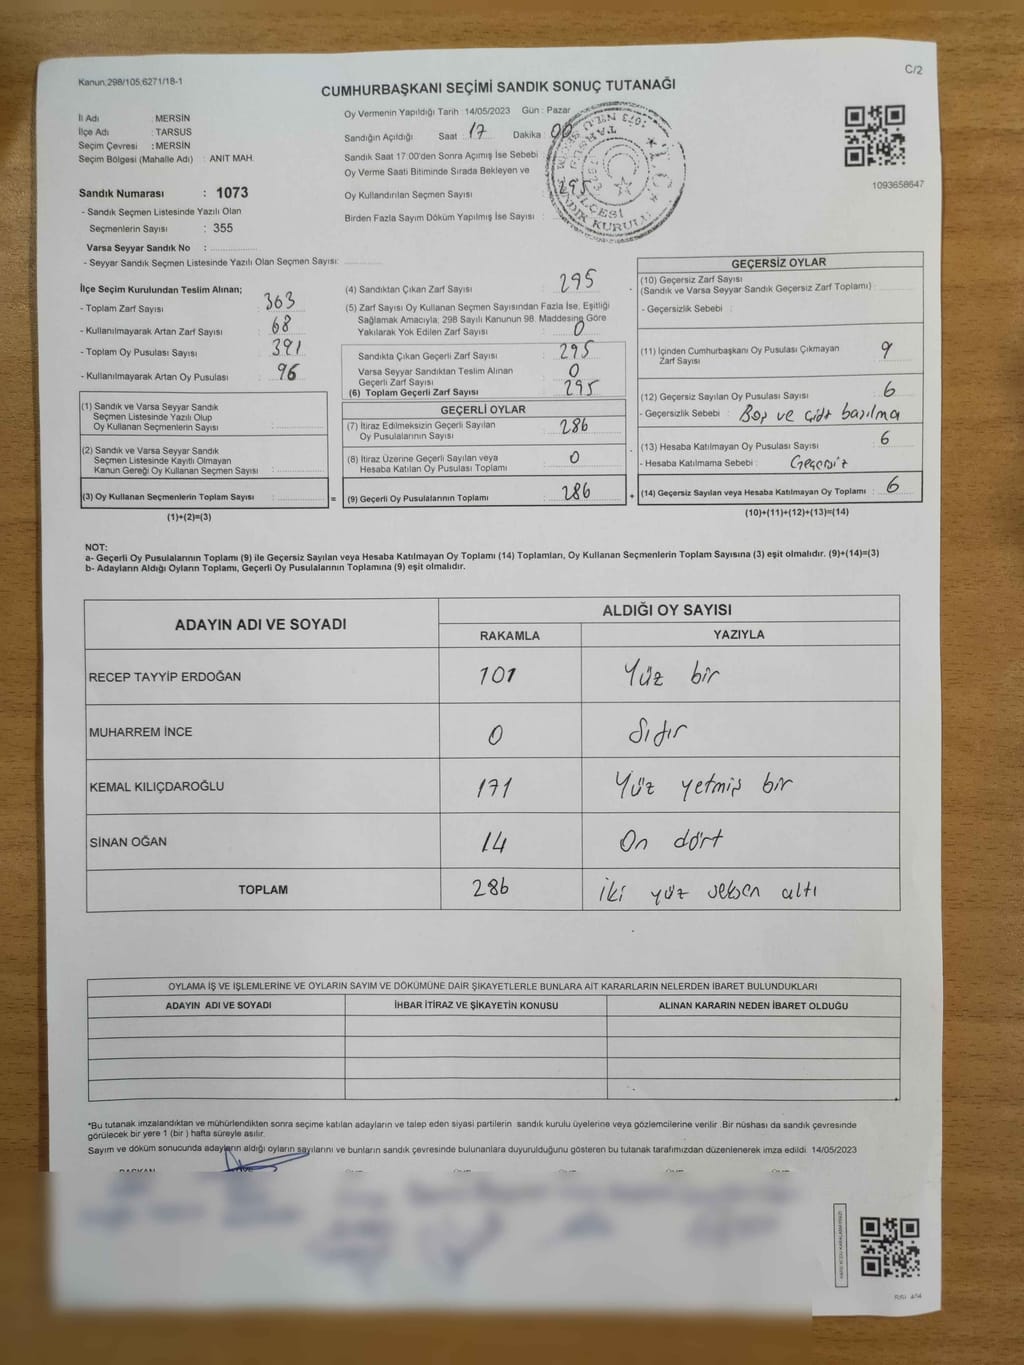 Kanun,298/105,6271/18-1
C/2
CUMHURBAŞKANI SEÇİMİ SANDIK SONUÇ TUTANAĞI
İl Adı : MERSİN
İlçe Adı : TARSUS
Seçim Çevresi : MERSİN
Seçim Bölgesi (Mahalle Adı) : ANIT MAH.
Sandık Numarası : 1073
- Sandık Seçmen Listesinde Yazılı Olan
Seçmenlerin Sayısı : 355
Varsa Seyyar Sandık No :
- Seyyar Sandık Seçmen Listesinde Yazılı Olan Seçmen Sayısı:
Oy Vermenin Yapıldığı Tarih : 14/05/2023 Gün : Pazar
Sandığın Açıldığı Saat : 17 Dakika : 00
Sandık Saat 17:00'den Sonra Açımış İse Sebebi :
Oy Verme Saati Bitiminde Sırada Bekleyen ve
Oy Kullandırılan Seçmen Sayısı : 295
Birden Fazla Sayım Döküm Yapılmış İse Sayısı :
1093658647
İlçe Seçim Kurulundan Teslim Alınan;
- Toplam Zarf Sayısı : 363
- Kullanılmayarak Artan Zarf Sayısı : 68
- Toplam Oy Pusulası Sayısı : 391
- Kullanılmayarak Artan Oy Pusulası : 96
(1) Sandık ve Varsa Seyyar Sandık
Seçmen Listesinde Yazılı Olup
Oy Kullanan Seçmenlerin Sayısı :
(2) Sandık ve Varsa Seyyar Sandık
Seçmen Listesinde Kayıtlı Olmayan
Kanun Gereği Oy Kullanan Seçmen Sayısı :
(3) Oy Kullanan Seçmenlerin Toplam Sayısı :
(1)+(2)=(3)
(4) Sandıktan Çıkan Zarf Sayısı : 295
(5) Zarf Sayısı Oy Kullanan Seçmen Sayısından Fazla İse, Eşitliği
Sağlamak Amacıyla, 298 Sayılı Kanunun 98. Maddesine Göre
Yakılarak Yok Edilen Zarf Sayısı : 0
Sandıkta Çıkan Geçerli Zarf Sayısı : 295
Varsa Seyyar Sandıktan Teslim Alınan
Geçerli Zarf Sayısı : 0
(6) Toplam Geçerli Zarf Sayısı : 295
GEÇERLİ OYLAR
(7) İtiraz Edilmeksizin Geçerli Sayılan
Oy Pusulalarının Sayısı : 286
(8) İtiraz Üzerine Geçerli Sayılan veya
Hesaba Katılan Oy Pusulası Toplamı : 0
(9) Geçerli Oy Pusulalarının Toplamı : 286
GEÇERSİZ OYLAR
(10) Geçersiz Zarf Sayısı
(Sandık ve Varsa Seyyar Sandık Geçersiz Zarf Toplamı) :
- Geçersizlik Sebebi :
(11) İçinden Cumhurbaşkanı Oy Pusulası Çıkmayan
Zarf Sayısı : 9
(12) Geçersiz Sayılan Oy Pusulası Sayısı : 6
- Geçersizlik Sebebi : Boş ve çift basılma
(13) Hesaba Katılmayan Oy Pusulası Sayısı : 6
- Hesaba Katılmama Sebebi : Geçersiz
(14) Geçersiz Sayılan veya Hesaba Katılmayan Oy Toplamı : 6
(10)+(11)+(12)+(13)=(14)
NOT:
a- Geçerli Oy Pusulalarının Toplamı (9) ile Geçersiz Sayılan veya Hesaba Katılmayan Oy Toplamı (14) Toplamları, Oy Kullanan Seçmenlerin Toplam Sayısına (3) eşit olmalıdır. (9)+(14)=(3)
b- Adayların Aldığı Oyların Toplamı, Geçerli Oy Pusulalarının Toplamına (9) eşit olmalıdır.
ADAYIN ADI VE SOYADI
ALDIĞI OY SAYISI
RAKAMLA YAZIYLA
RECEP TAYYİP ERDOĞAN 101 Yüz bir
MUHARREM İNCE 0 Sıfır
KEMAL KILIÇDAROĞLU 171 Yüz yetmiş bir
SİNAN OĞAN 14 On dört
TOPLAM 286 iki yüz seksen altı
OYLAMA İŞ VE İŞLEMLERİNE VE OYLARIN SAYIM VE DÖKÜMÜNE DAİR ŞİKAYETLERLE BUNLARA AİT KARARLARIN NELERDEN İBARET BULUNDUKLARI
ADAYIN ADI VE SOYADI İHBAR İTİRAZ VE ŞİKAYETİN KONUSU ALINAN KARARIN NEDEN İBARET OLDUĞU
*Bu tutanak imzalandıktan ve mühürlendikten sonra seçime katılan adayların ve talep eden siyasi partilerin sandık kurulu üyelerine veya gözlemcilerine verilir .Bir nüshası da sandık çevresinde
görülecek bir yere 1 (bir ) hafta süreyle asılır.
Sayım ve döküm sonucunda adayların aldığı oyların sayılarını ve bunların sandık çevresinde bulunanlara duyurulduğunu gösteren bu tutanak tarafımızdan düzenlenerek imza edildi. 14/05/2023